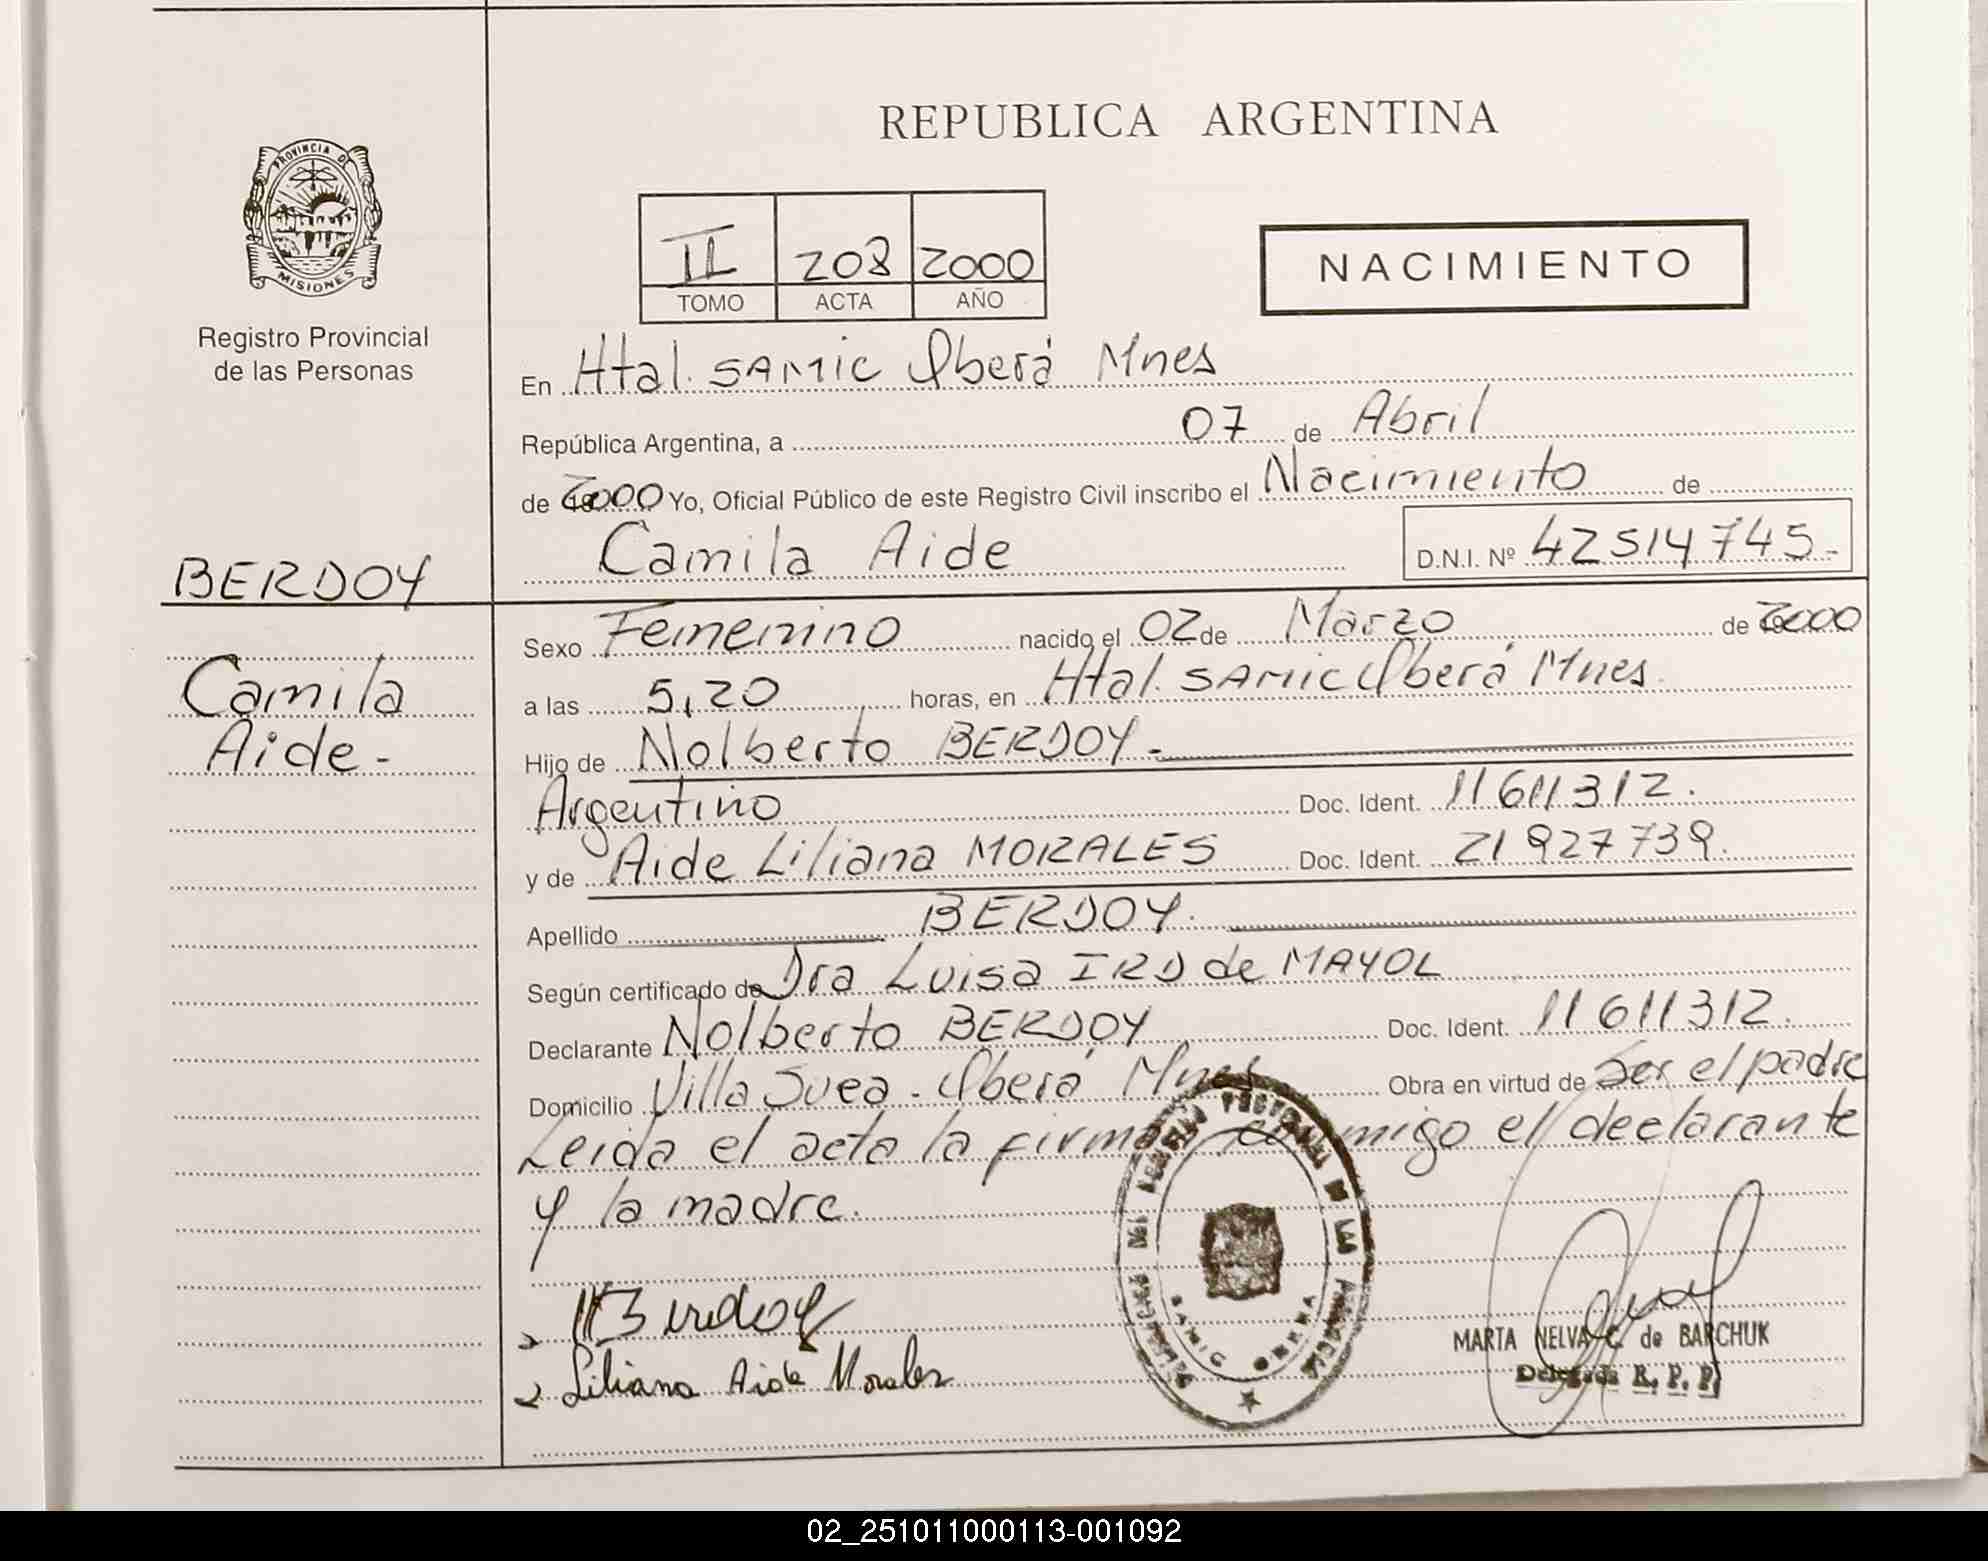 REPUBLICA ARGENTINA
PROVINCIA DE
MISIONES
Registro Provincial
de las Personas
II 208 2000
TOMO ACTA AÑO
NACIMIENTO
En Htal. SAMIC Oberá Mnes
República Argentina, a 07 de Abril
de 2000 Yo, Oficial Público de este Registro Civil inscribo el Nacimiento de
Camila Aide D.N.I. Nº 42514745.-
BERDOY
Camila
Aide-
Sexo Femenino nacido el 02 de Marzo de 2000
a las 5,20 horas, en Htal. SAMIC Oberá Mnes.
Hijo de Nolberto BERDOY.-
Argentino Doc. Ident. 11611312.
y de Aide Liliana MORALES Doc. Ident. 21927739.
Apellido BERDOY.
Según certificado de Dra Luisa IRD de MAYOL
Declarante Nolberto BERDOY Doc. Ident. 11611312.
Domicilio Villa Svea. Oberá Mnes Obra en virtud de Ser el padre
Leida el acta la firman conmigo el declarante
y la madre.
Berdoy
Liliana Aide Morales
PROVINCIAL DE LAS PERSONAS
SAMIC OBERA
MARTA NELVA C. de BARCHUK
Delegada R. P. P.
02_251011000113-001092